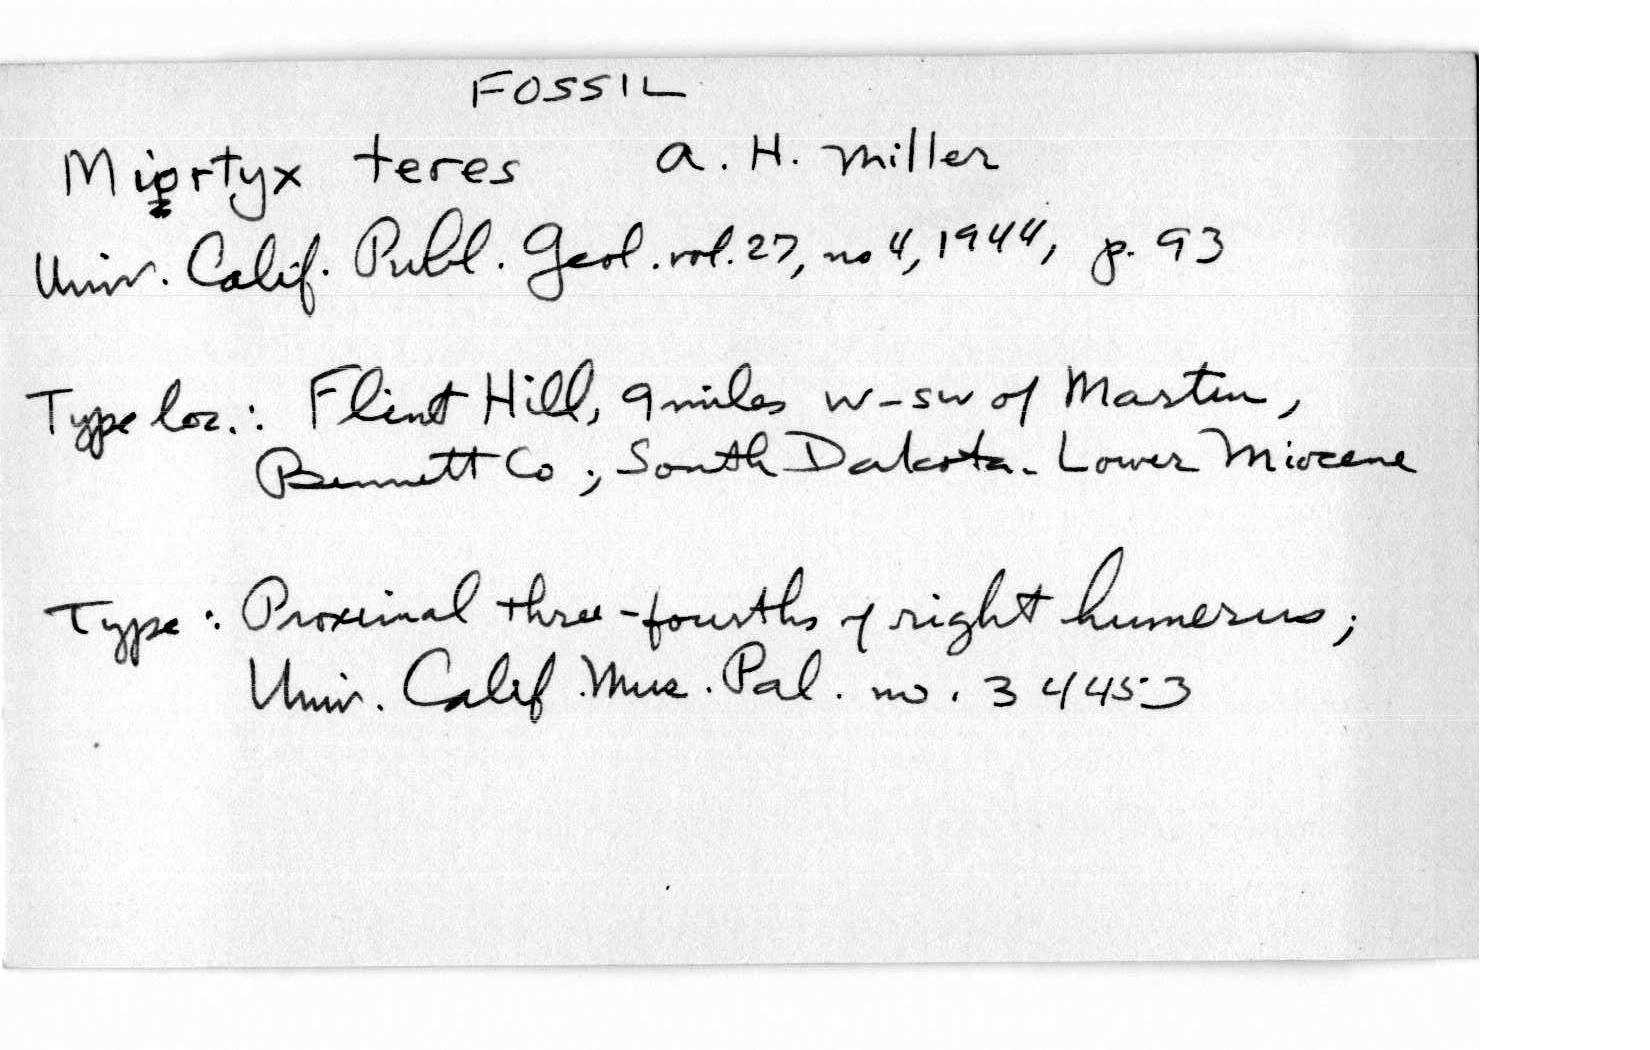 FOSSIL
Miortyx teres A. H. Miller
Univ. Calif. Publ. Geol. vol. 27, no 4, 1944, p. 93
Type loc.: Flint Hill, 9 miles W-SW of Martin,
Bennett Co; South Dakota. Lower Miocene
Type: Proximal three-fourths of right humerus;
Univ. Calif. Mus. Pal. no. 34453